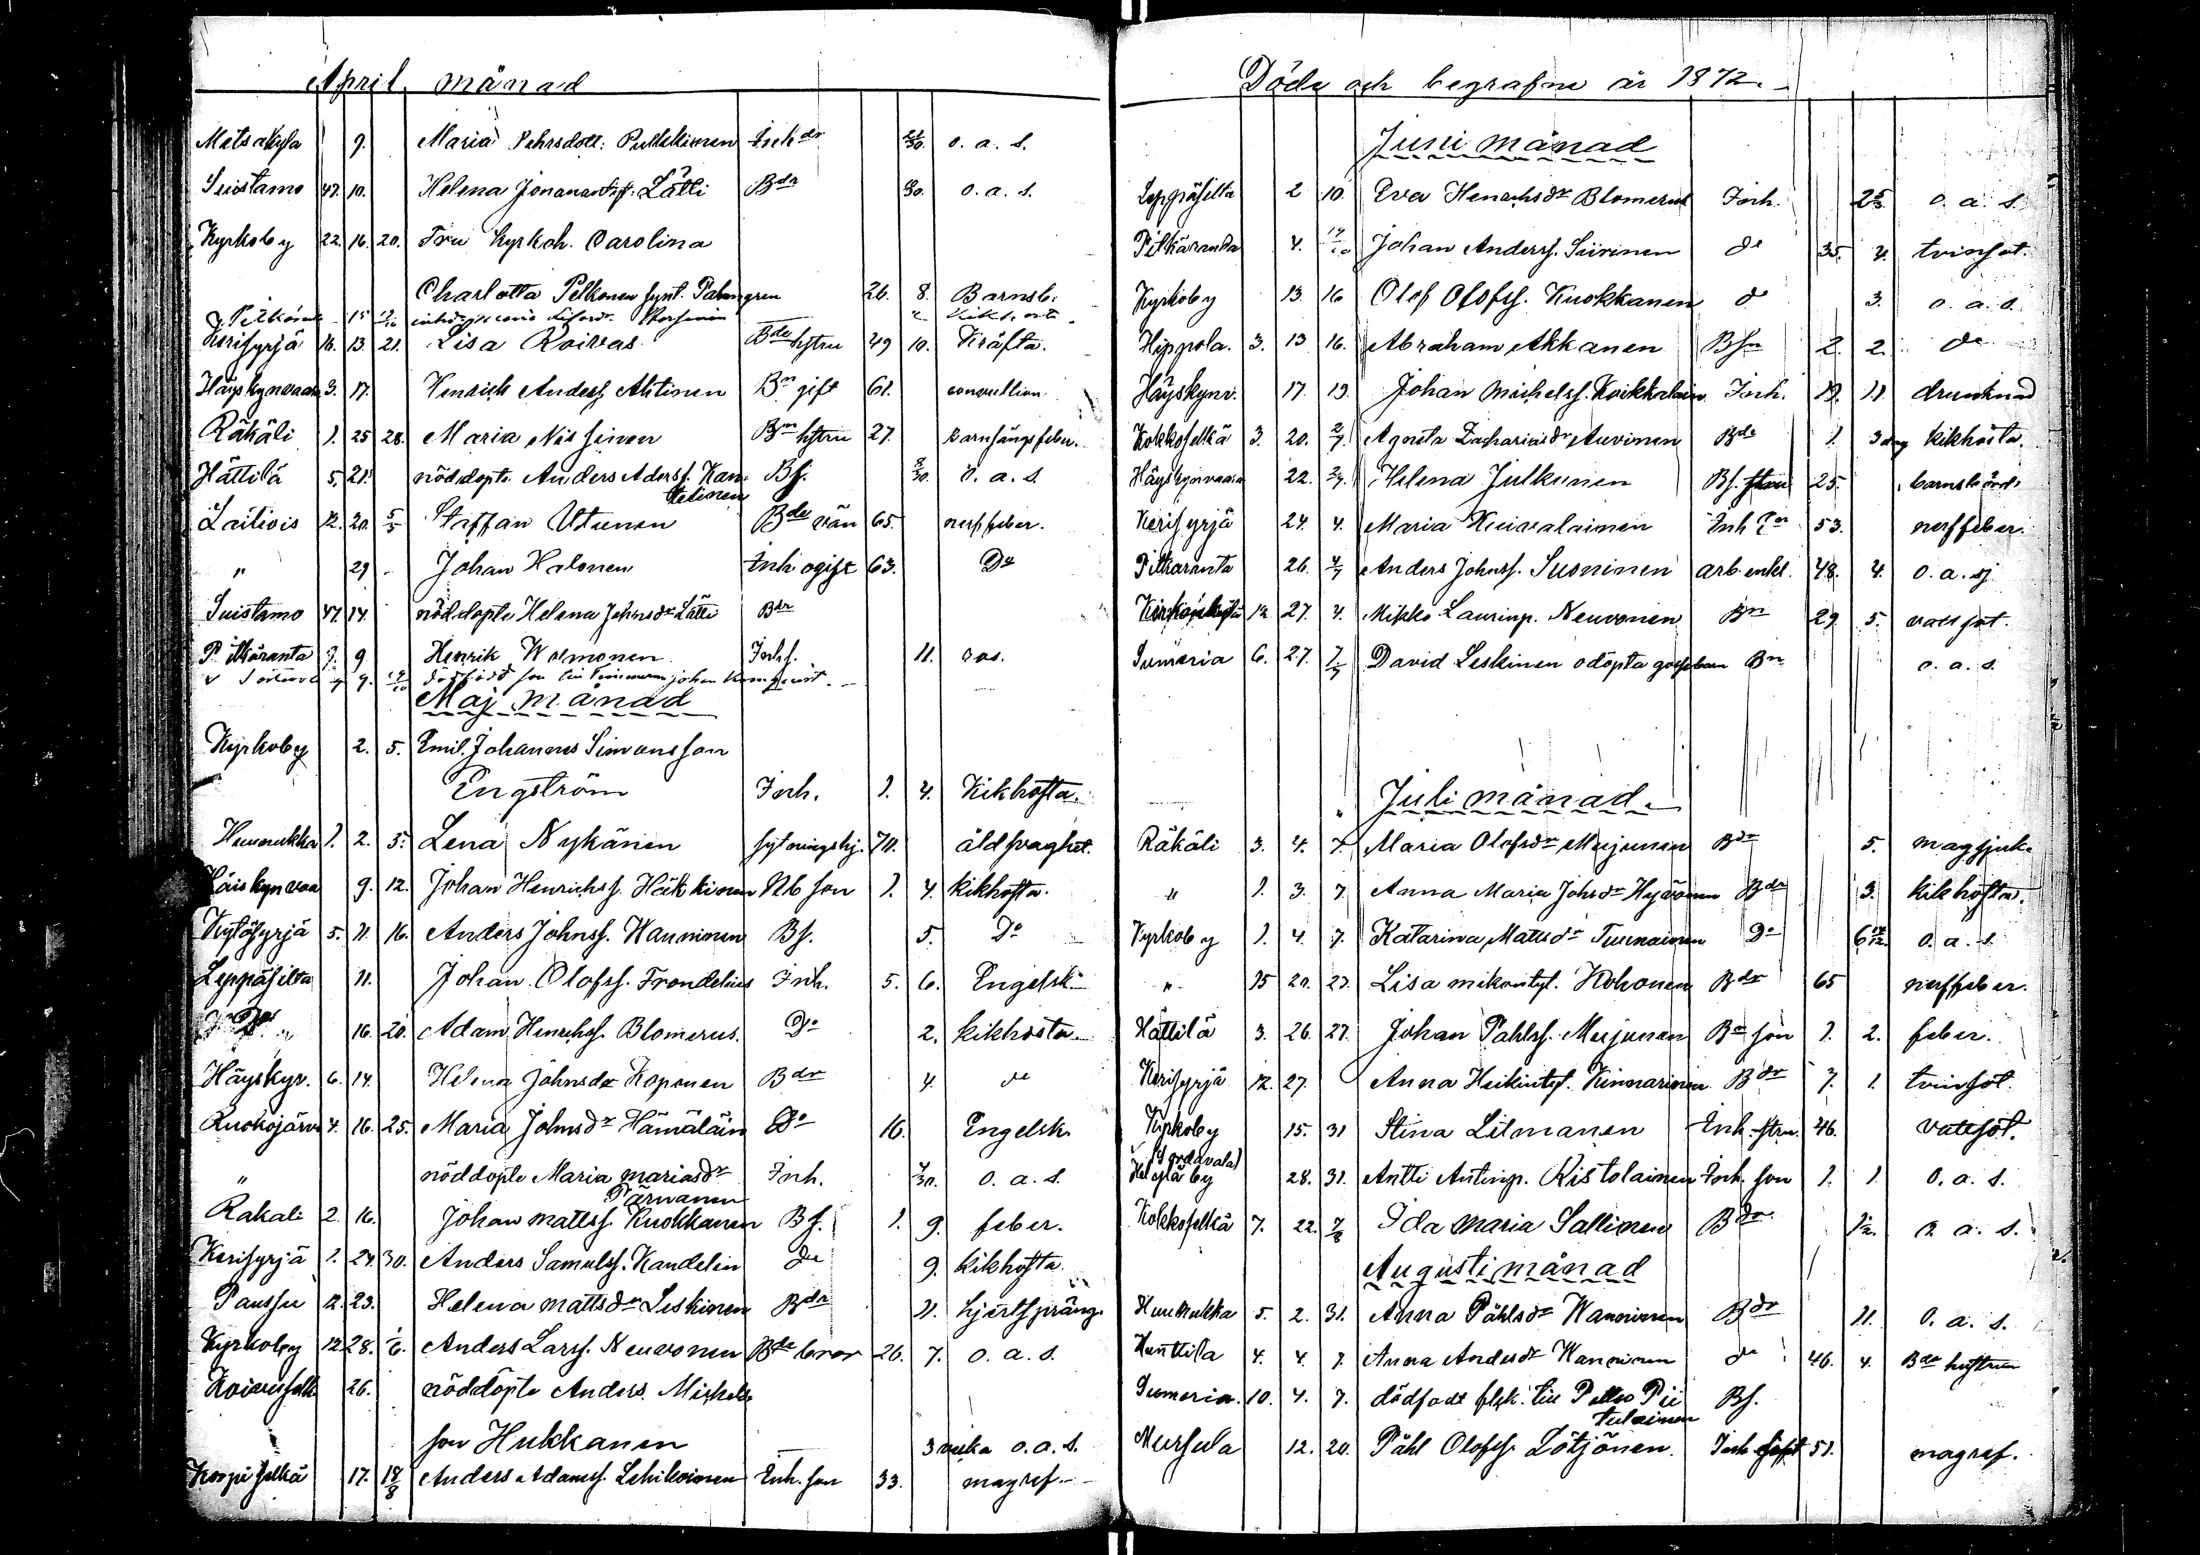 April månad
Metsäkylä 9. Maria Pehrsdott. Inh dr 21/30. o. a. s.
Suistamo 47. 10. Helena Lätti Bdr 30. o. a. s.
Kyrkoby 22. 16. 20. Fru Kyrkoh. Carolina
Charlotta Pelkonen fynt. Palmgren 26. 8. Barnsb.
15
Kerisyrjä 16. 13. 21. Lisa Roivas Bde hstru 49 10. Kräfta.
Häyskynvaara 3. 17. Henrich Anderss. Ahtinen Bn gift 61. convultion
Räkäli 1. 25 28. Maria Nissinen Bm hstru 27. barnsängsfeber.
Hättilä 5. 21. nöddöpte Anders Aderss. Kan- Bs. 8/30. o. a. s.
telinen
Laitiois 12. 20. 5/5 Staffan Utunen Bde 65. nerffeber.
" 29 - Johan Halonen Inh ogift 63. Do
Suistamo 47. 14. nöddöpte Helena Johnsdr Lätti Bdr
Pitkäranta 7. 9 Henrik Wormonen Inhs. 11. ros.
Maj månad
Kyrkoby 2. 5. Emil Johannes Simonsson
Engström Inh. 1. 4. Kikhosta.
1. 2. 5. Lena Nykänen sytningshj. 70. åldfraghet.
Häiskynvaa 9. 12. Johan Henrichss. Häkkinen Nb son 1. 4. kikhosta.
Kytösyrjä 5. 11. 16. Anders Johnss. Wänninen Bs. 5. Do
Leppäsilta 11. Johan Olofss. Frondelius Inh. 5. 6. Engelsk.
Do 16. 20. Adam Henrichss. Blomerus. Do 2. kikhosta.
Häyskyv. 6. 14. Helena Johnsdr Koponen Bdr 4. de
Ruokojärvi 4. 16. 25. Maria Johnsdr Hämäläin Do 16. Engelsk.
" nöddöpte Maria Mariasdr Inh. 4/30. o. a. s.
Pärnänen
Räkäli 2. 16. Johan Mattss. Kuokkanen Bs. 1. 9. feber.
Kerisyrjä 1. 24. 30. Anders Samulss. Kandelin de 9. kikhosta.
Paussu 12. 23. Helena Mattsdr Leskinen Bdr 11. hjertspräng.
Kyrkoby 12. 28. 1/6. Anders Larss. Neuvonen Bde bror 26. 7. o. a. s.
26. nöddöpte Anders Michels
son Hukkanen 3 vecka o. a. s.
17. 18/8 Anders Adamss. Lehikoinen Inh. son 33. magref.
Döde och begrafne år 1872.
Juni månad
Leppäsilta 2 10. Eva Henrichsdr Blomerus Inh. 25 o. a. s.
Pitkäranda 4. Johan Anderss. Siirinen de 35. 4. tvinsot.
Kyrkoby 13. 16 Olof Olofss. Kuokkanen d 3. o. a. s.
Hippola. 3. 13 16. Abraham Akkanen Bsn 2. 2. de
Häyskynv. 17. 19. Johan Michelss. Koikkalain Inh. 19. 11 drunknad
Kokkoselkä 3. 20. 2/7. Agneta Zachariasdr Auvinen Bde 1. 3 dag kikhosta.
Häyskynvaara 22. 2/7. Helena Julkunen Bs. 25. barnsbörd.
Kerisyrjä 24. 4. Maria Kuivalainen Inh 53. nerffeber.
Pitkäranta 26. 4/7 Anders Johnss. Suoninen arb. enkl. 48. 4. o. a. sj
12 27. 4. Mikko Laurinp. Neuvonen Bn 29. 5. vattsot.
Sumeria 6. 27. 7/7 David Leskinen odöpta gossebarn Bn o. a. s.
Juli månad.
Räkäli 3. 4. 7. Maria Olofsdr Mujunen Bdr 5. magsjuk.
" 1. 3. 7. Anna Maria Johsdr Hyvönen Bdr 3. kikhosta.
Kyrkoby 1. 4. 7. Katarina Mattsdr Tuunainen Do 6 o. a. s.
" 15 20. 27. Lisa Mikontyt. Kokonen Bdr 65 nerffeber.
Hättilä 3. 26. 27. Johan Pahlss. Mujunen Bn son 1. 2. feber.
Kerisyrjä 12. 27. Anna Heikintyt. Kinnarinen Bdr 7. 1. tvinsot.
Kyrkoby 15. 31 Stina Litmanen Inh. stru. 46. vattsot.
(Sordavala)
Helylä by 28. 31. Antti Antinp. Ristolainen Inh. son 1. 1. o. a. s.
Kokkoselkä 7. 22. 7/8 Ida Maria Sallinen Bdr 1/2. o. a. s.
Augusti månad
Huunukka 5. 2. 31. Anna Påhlsdr Wänninen Bdr 11. o. a. s.
Hunttila 4. 4. 7. Anna Andersdr Wänninen de 46. 4. Bde hustru
Sumeria. 10. 4. 7. dödfödt flsk. till Petter Pii Bs.
tulainen
Mursula 12. 20. Påhl Olofss. Lötjönen. Inh gift 51. magref.